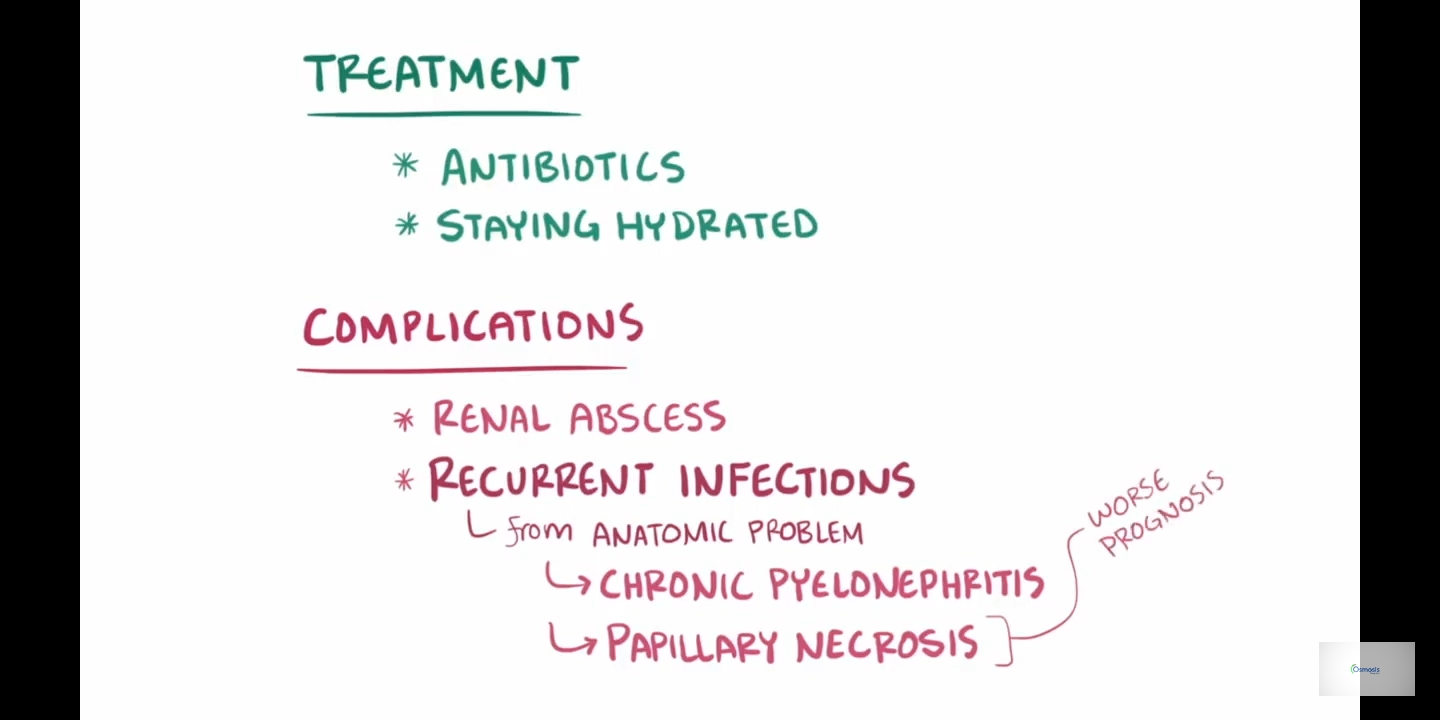 TREATMENT
* ANTIBIOTICS
* STAYING HYDRATED
COMPLICATIONS
* RENAL ABSCESS
* RECURRENT INFECTIONS
from ANATOMIC PROBLEM
CHRONIC PYELONEPHRITIS
PAPILLARY NECROSIS
WORSE
PROGNOSIS
Osmosis